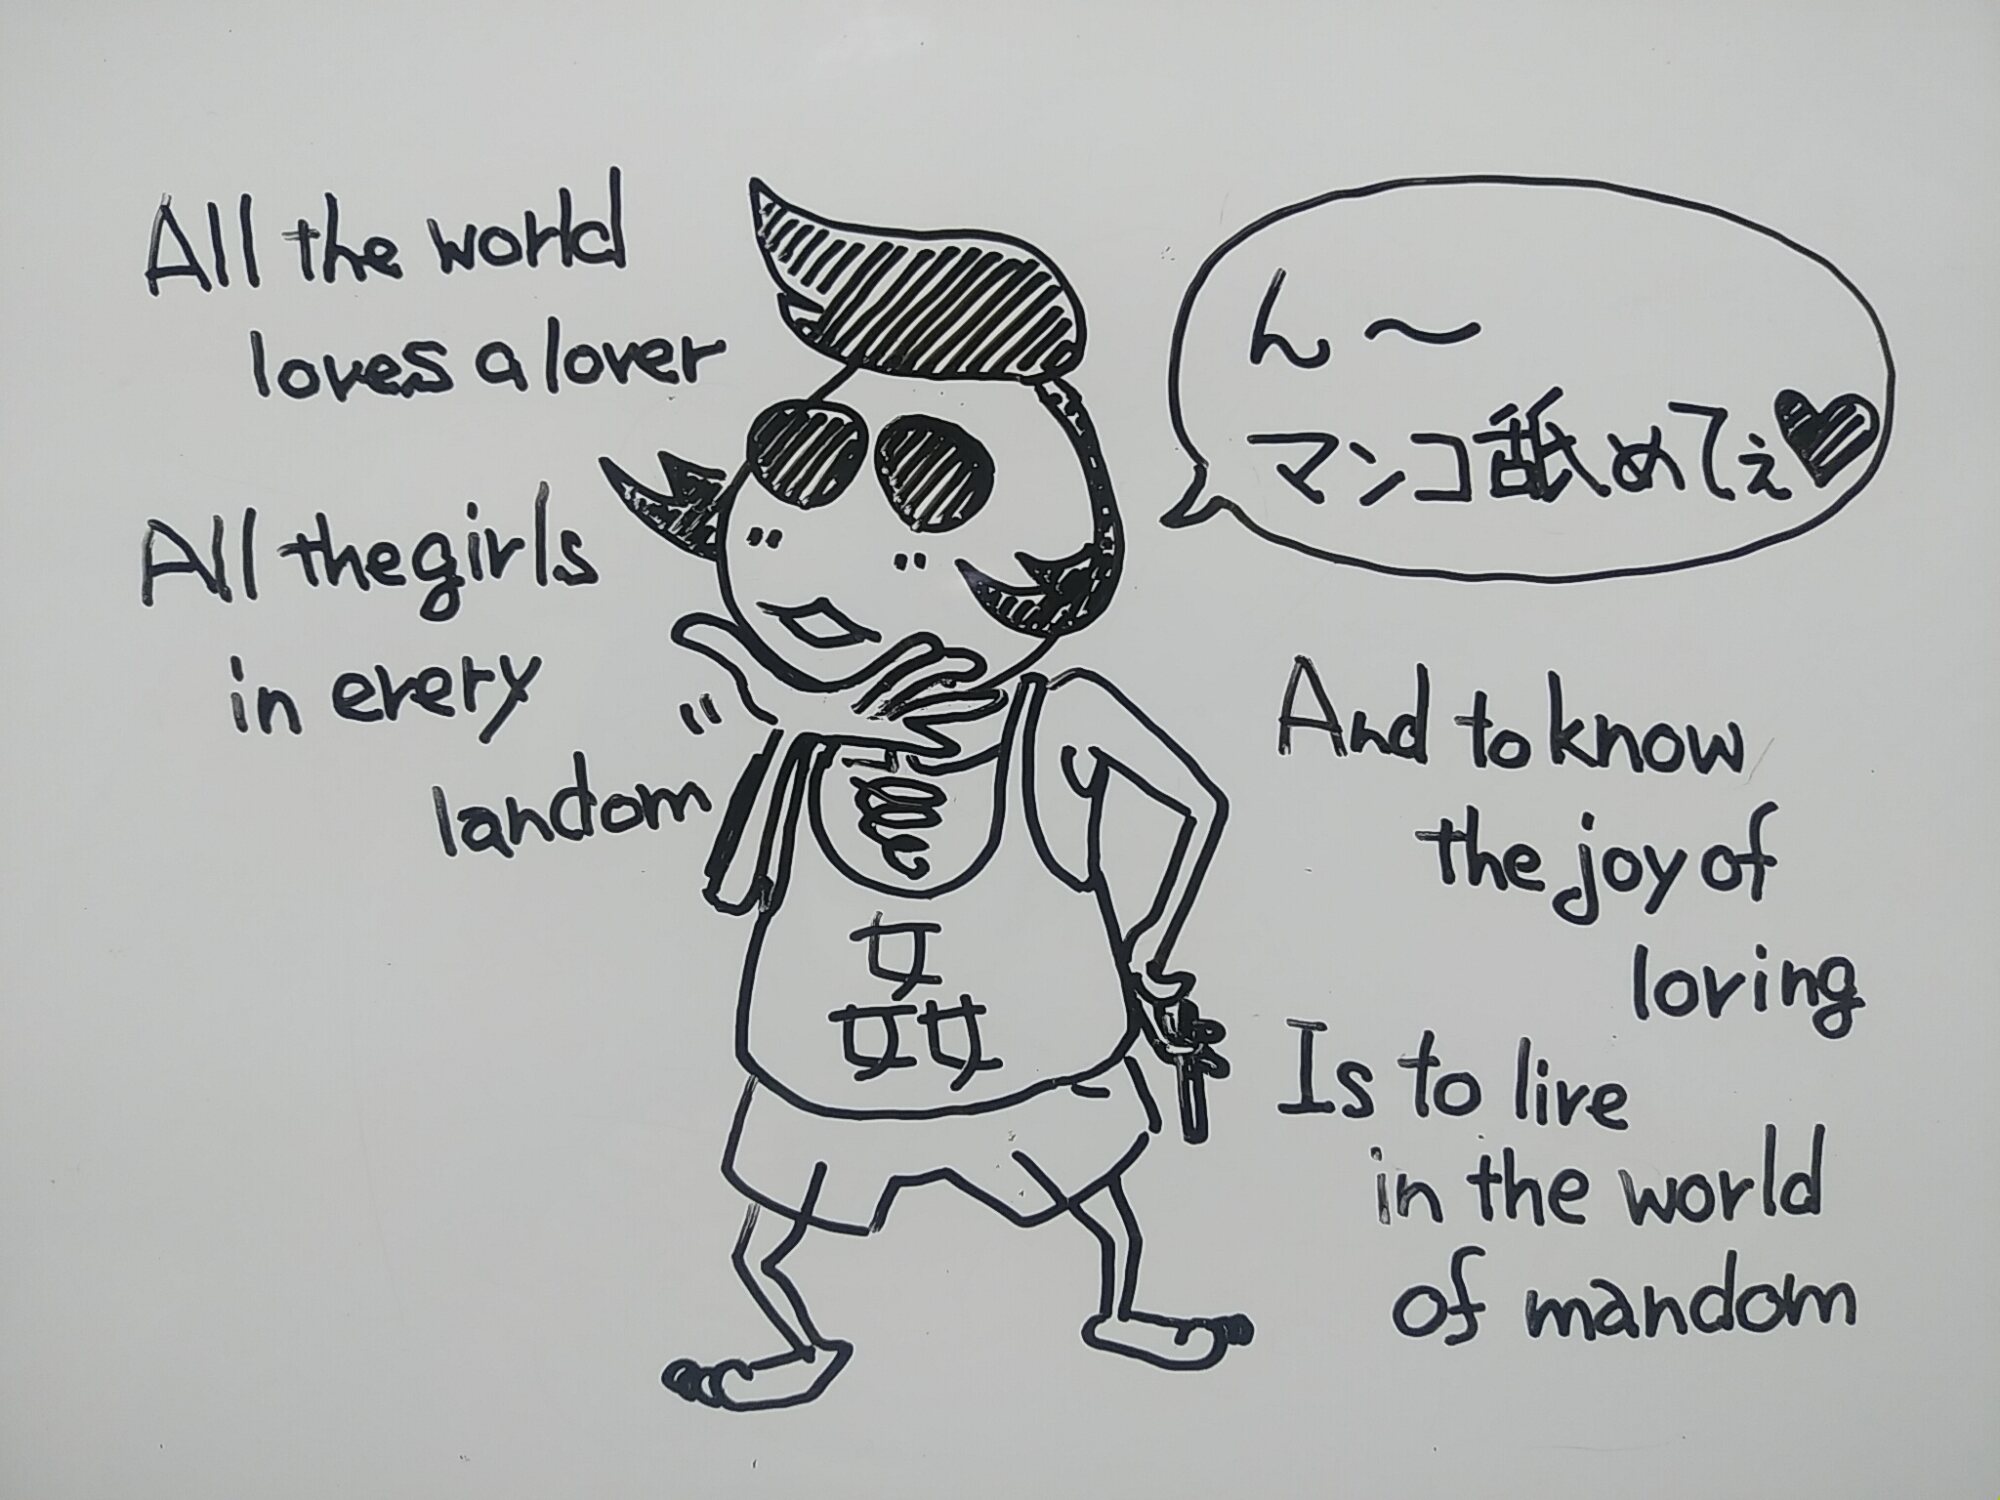 All the world
loves a lover
All the girls
in every
landom
ん～
マンコ舐めてぇ♥
女
女女
And to know
the joy of
loving
Is to live
in the world
of mandom